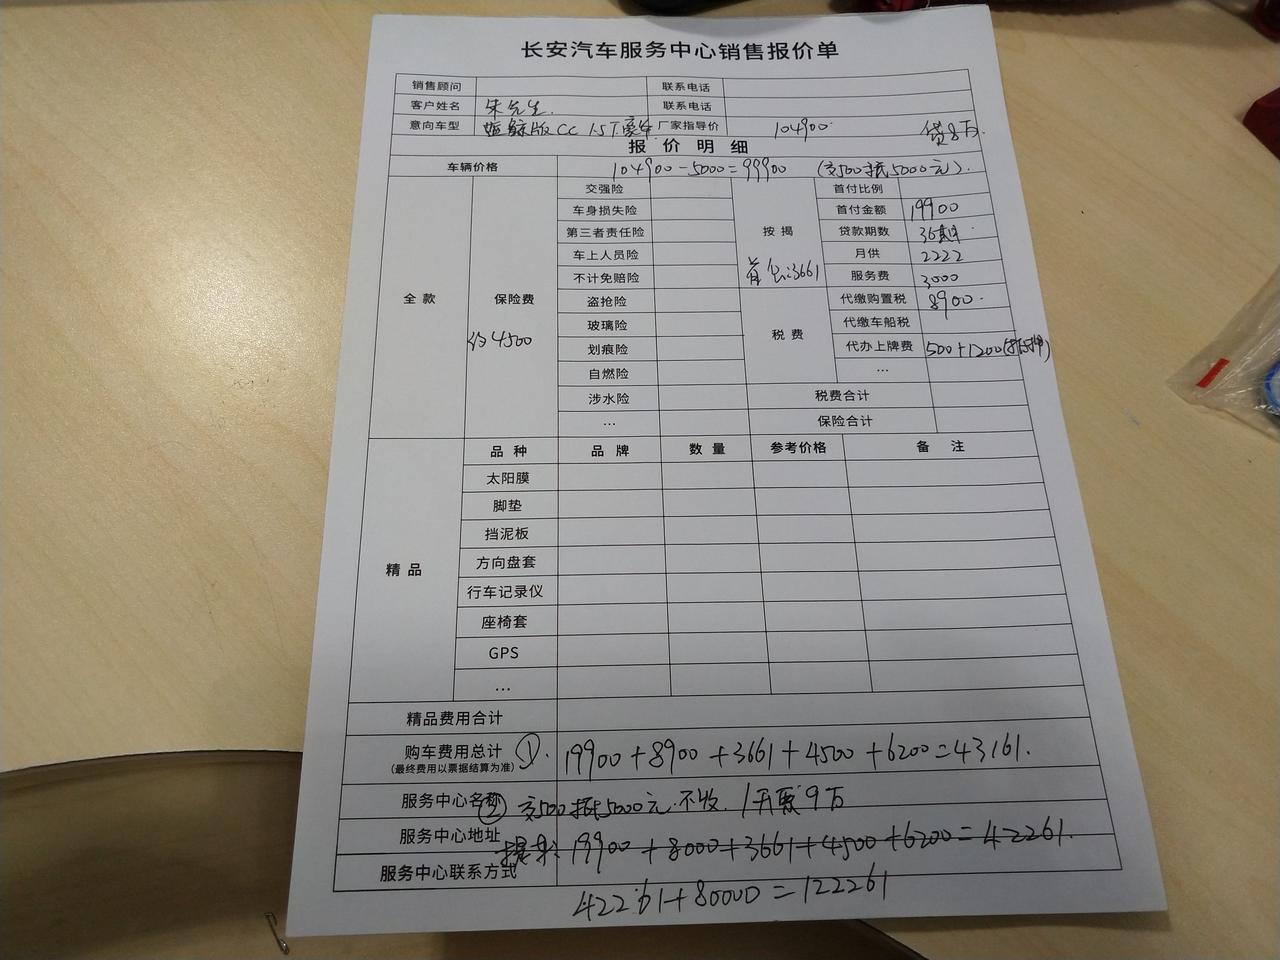 长安汽车服务中心销售报价单
销售顾问 联系电话
客户姓名 朱先生. 联系电话
意向车型 蓝鲸版CC 1.5T豪华 厂家指导价 104900. 贷8万.
报价明细
车辆价格 104900-5000=99900 (交500抵5000元).
全款
保险费
约4500
交强险
车身损失险
第三者责任险
车上人员险
不计免赔险
盗抢险
玻璃险
划痕险
自燃险
涉水险
...
按揭
首付比例
首付金额 19900
贷款期数 36期
月供 2222
服务费 3000
3661
税费
代缴购置税 8900.
代缴车船税
代办上牌费 500+1200(抵押)
...
税费合计
保险合计
精品
品种 品牌 数量 参考价格 备注
太阳膜
脚垫
挡泥板
方向盘套
行车记录仪
座椅套
GPS
...
精品费用合计
购车费用总计 ①. 19900+8900+3661+4500+6200=43161.
(最终费用以票据结算为准)
服务中心名称 ② 交500抵5000元.不收. 开票9万
服务中心地址 19900+8000+3661+4500+6200=42261.
服务中心联系方式
42261+80000=122261